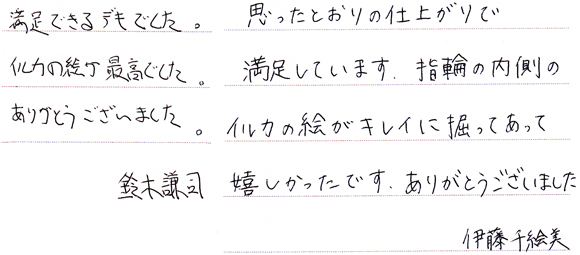 満足できるデキでした。
イルカの絵が最高でした。
ありがとうございました。
鈴木謙司
思ったとおりの仕上がりで
満足しています。指輪の内側の
イルカの絵がキレイに掘ってあって
嬉しかったです。ありがとうございました
伊藤千絵美